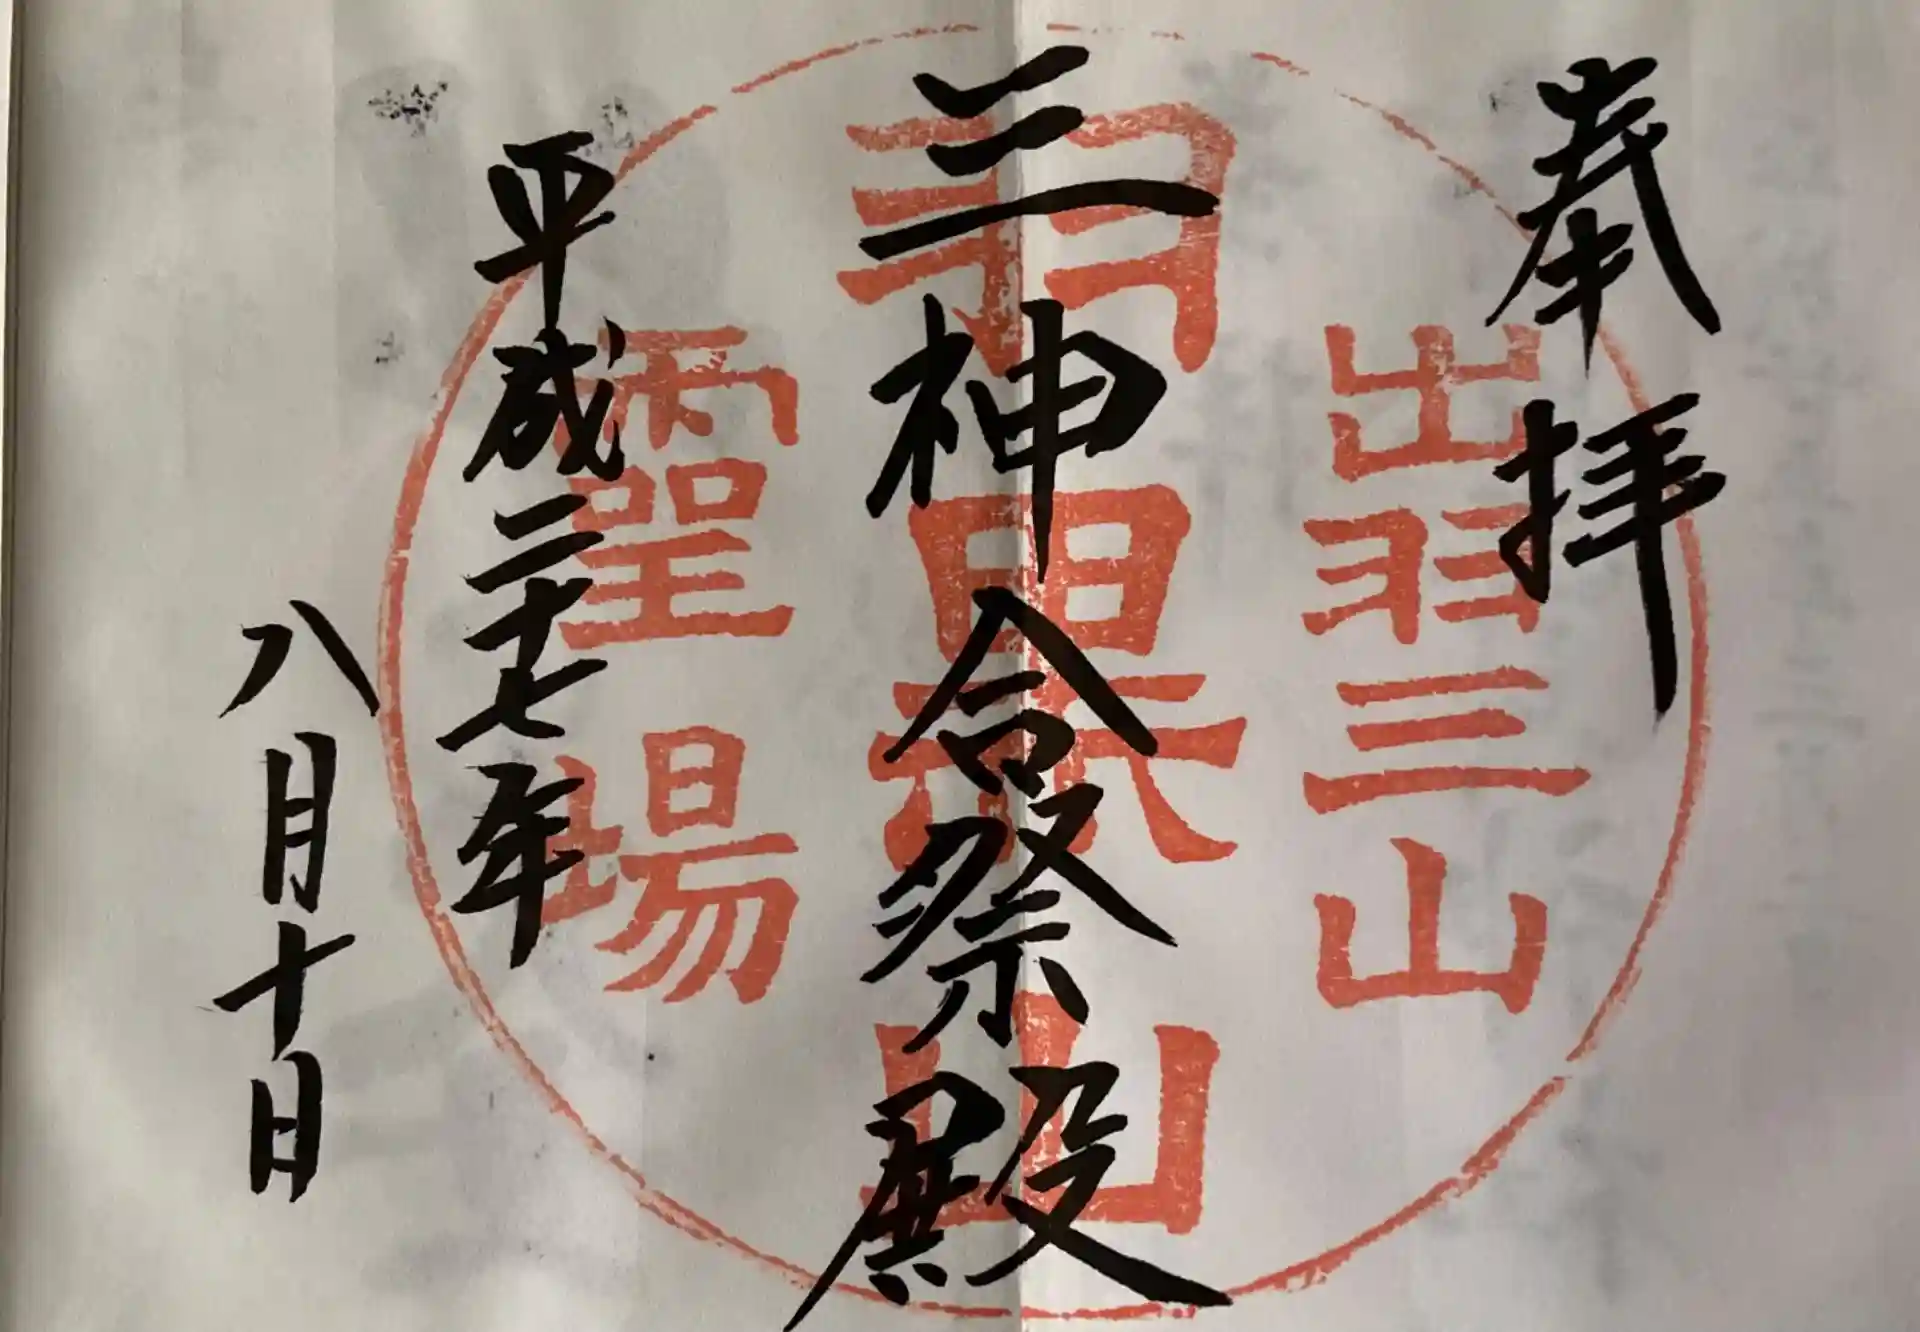 奉拝
出羽三山
三神合祭殿
羽黒山
霊場
平成二十七年
八月十日